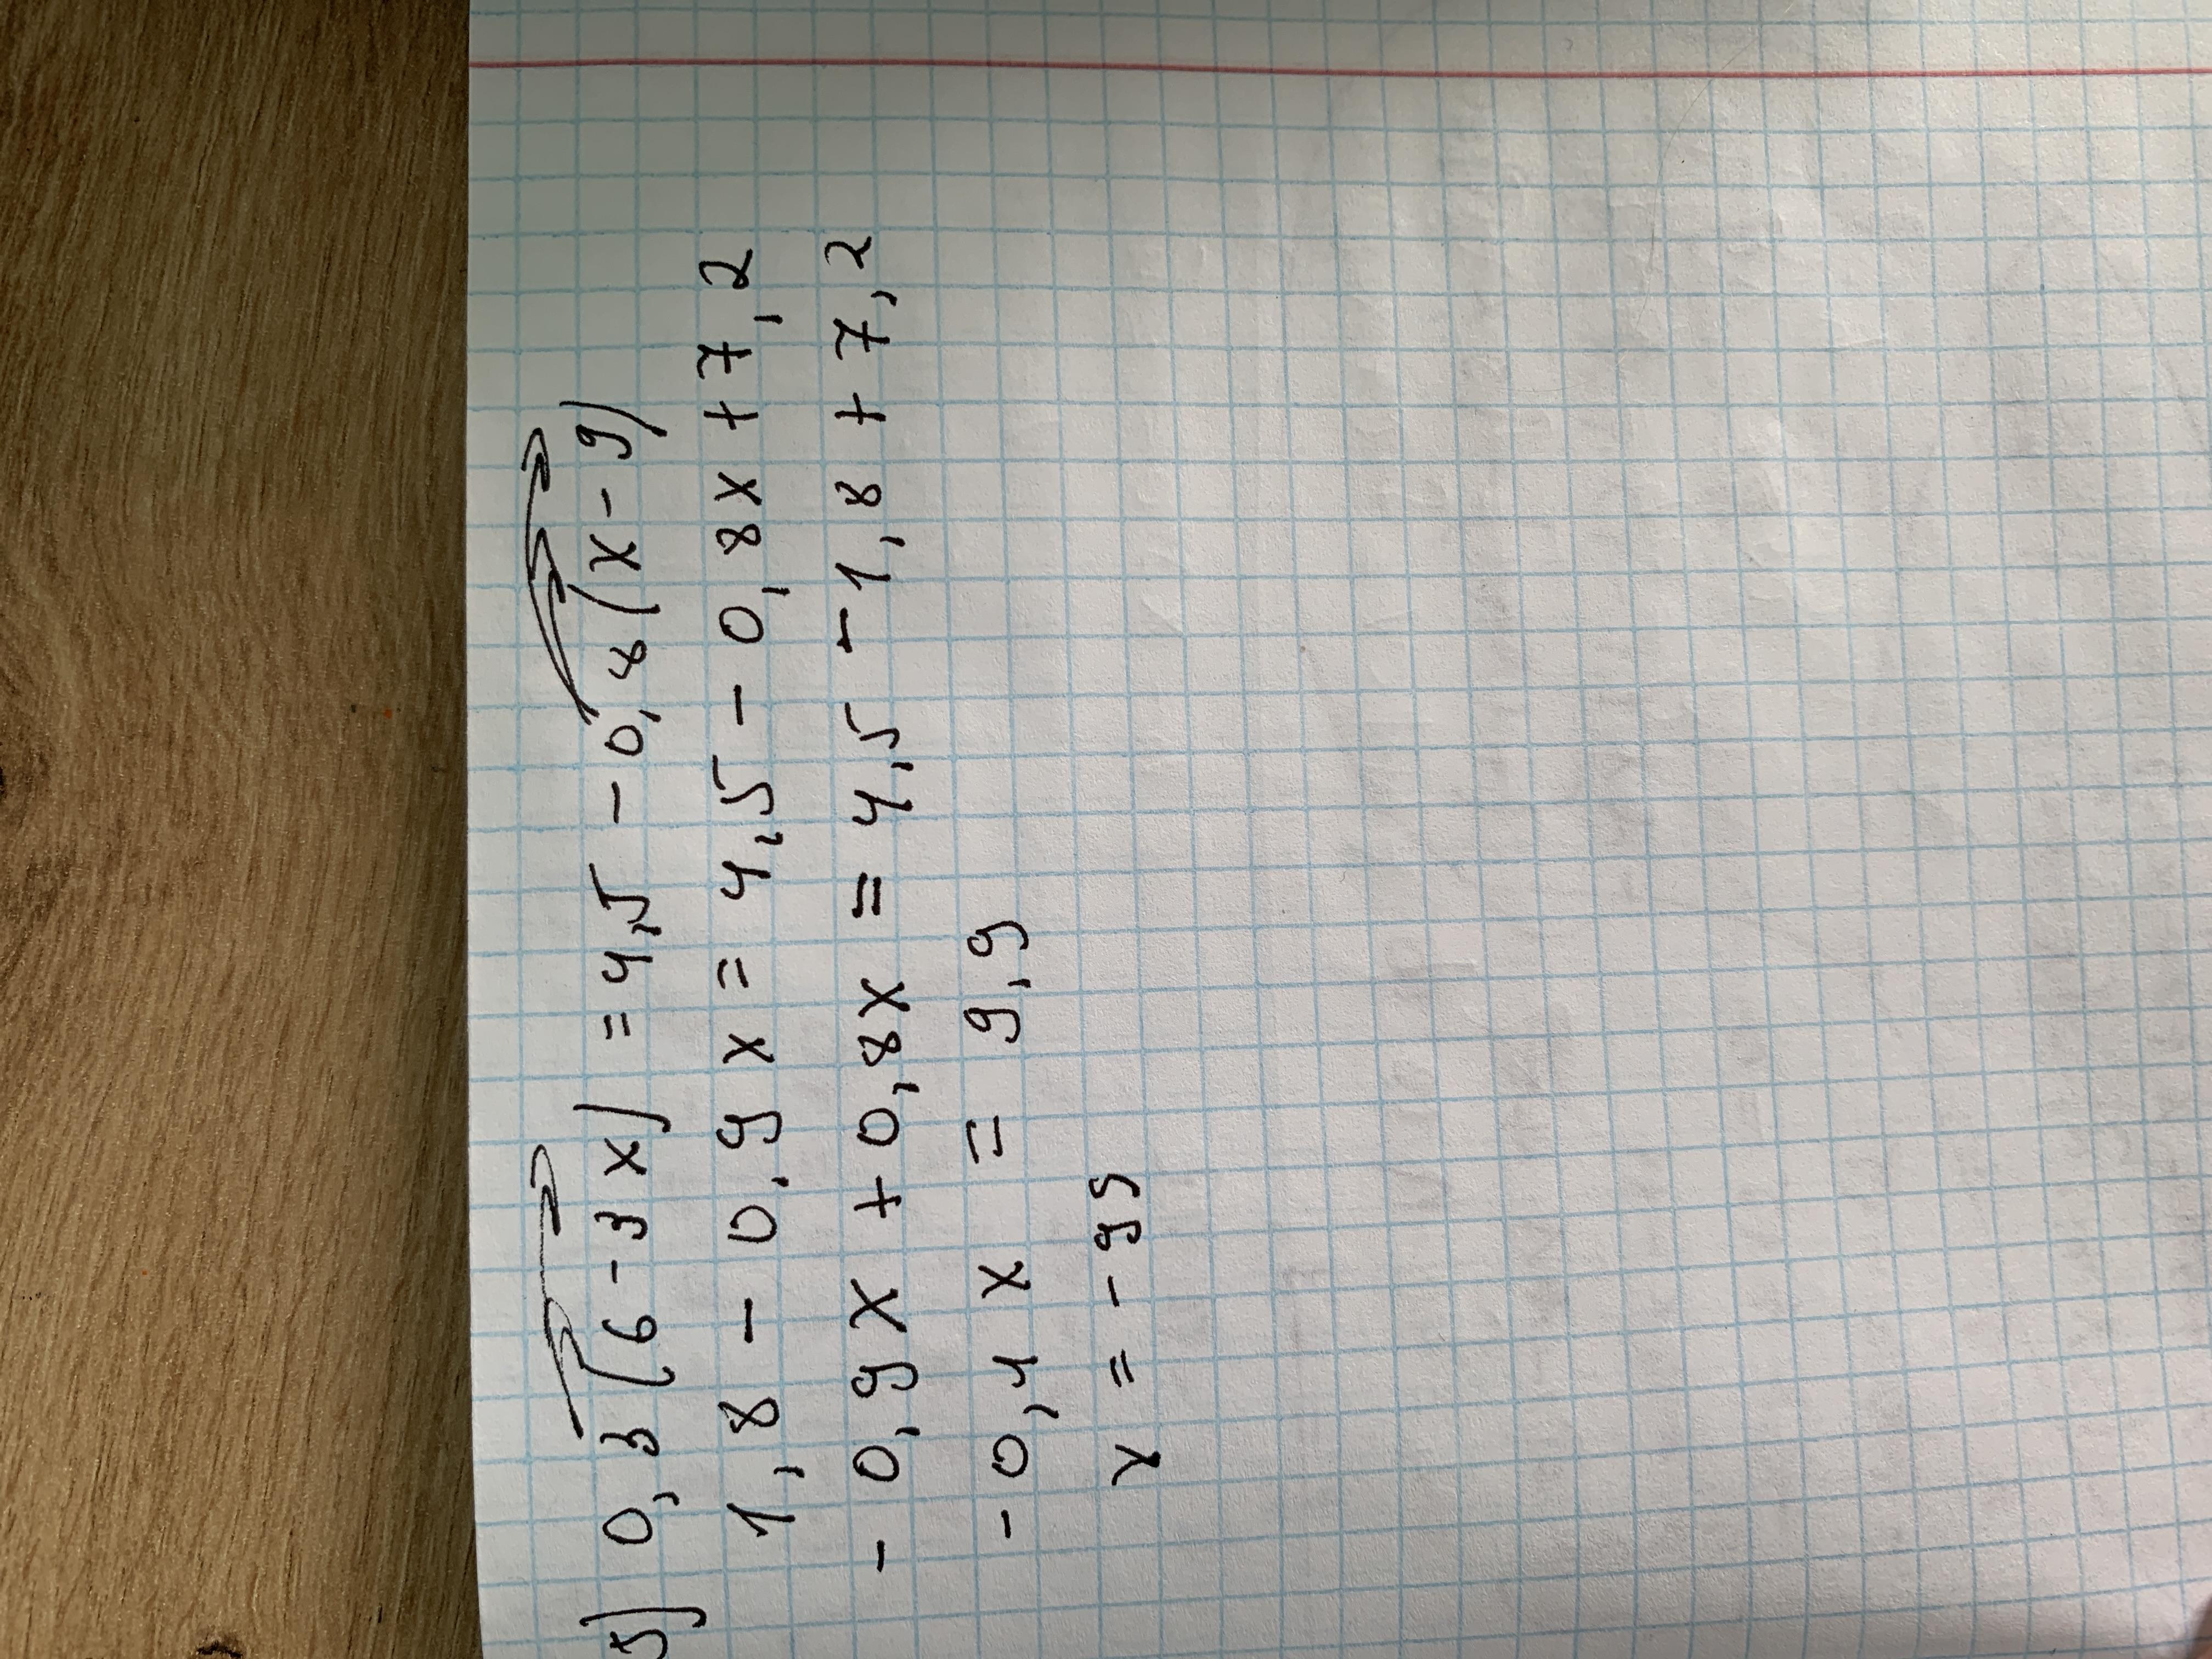 5) 0,3(6-3x) = 4,5 - 0,8(x-9)
1,8 - 0,9x = 4,5 - 0,8x + 7,2
-0,9x + 0,8x = 4,5 - 1,8 + 7,2
-0,1x = 9,9
x = -99